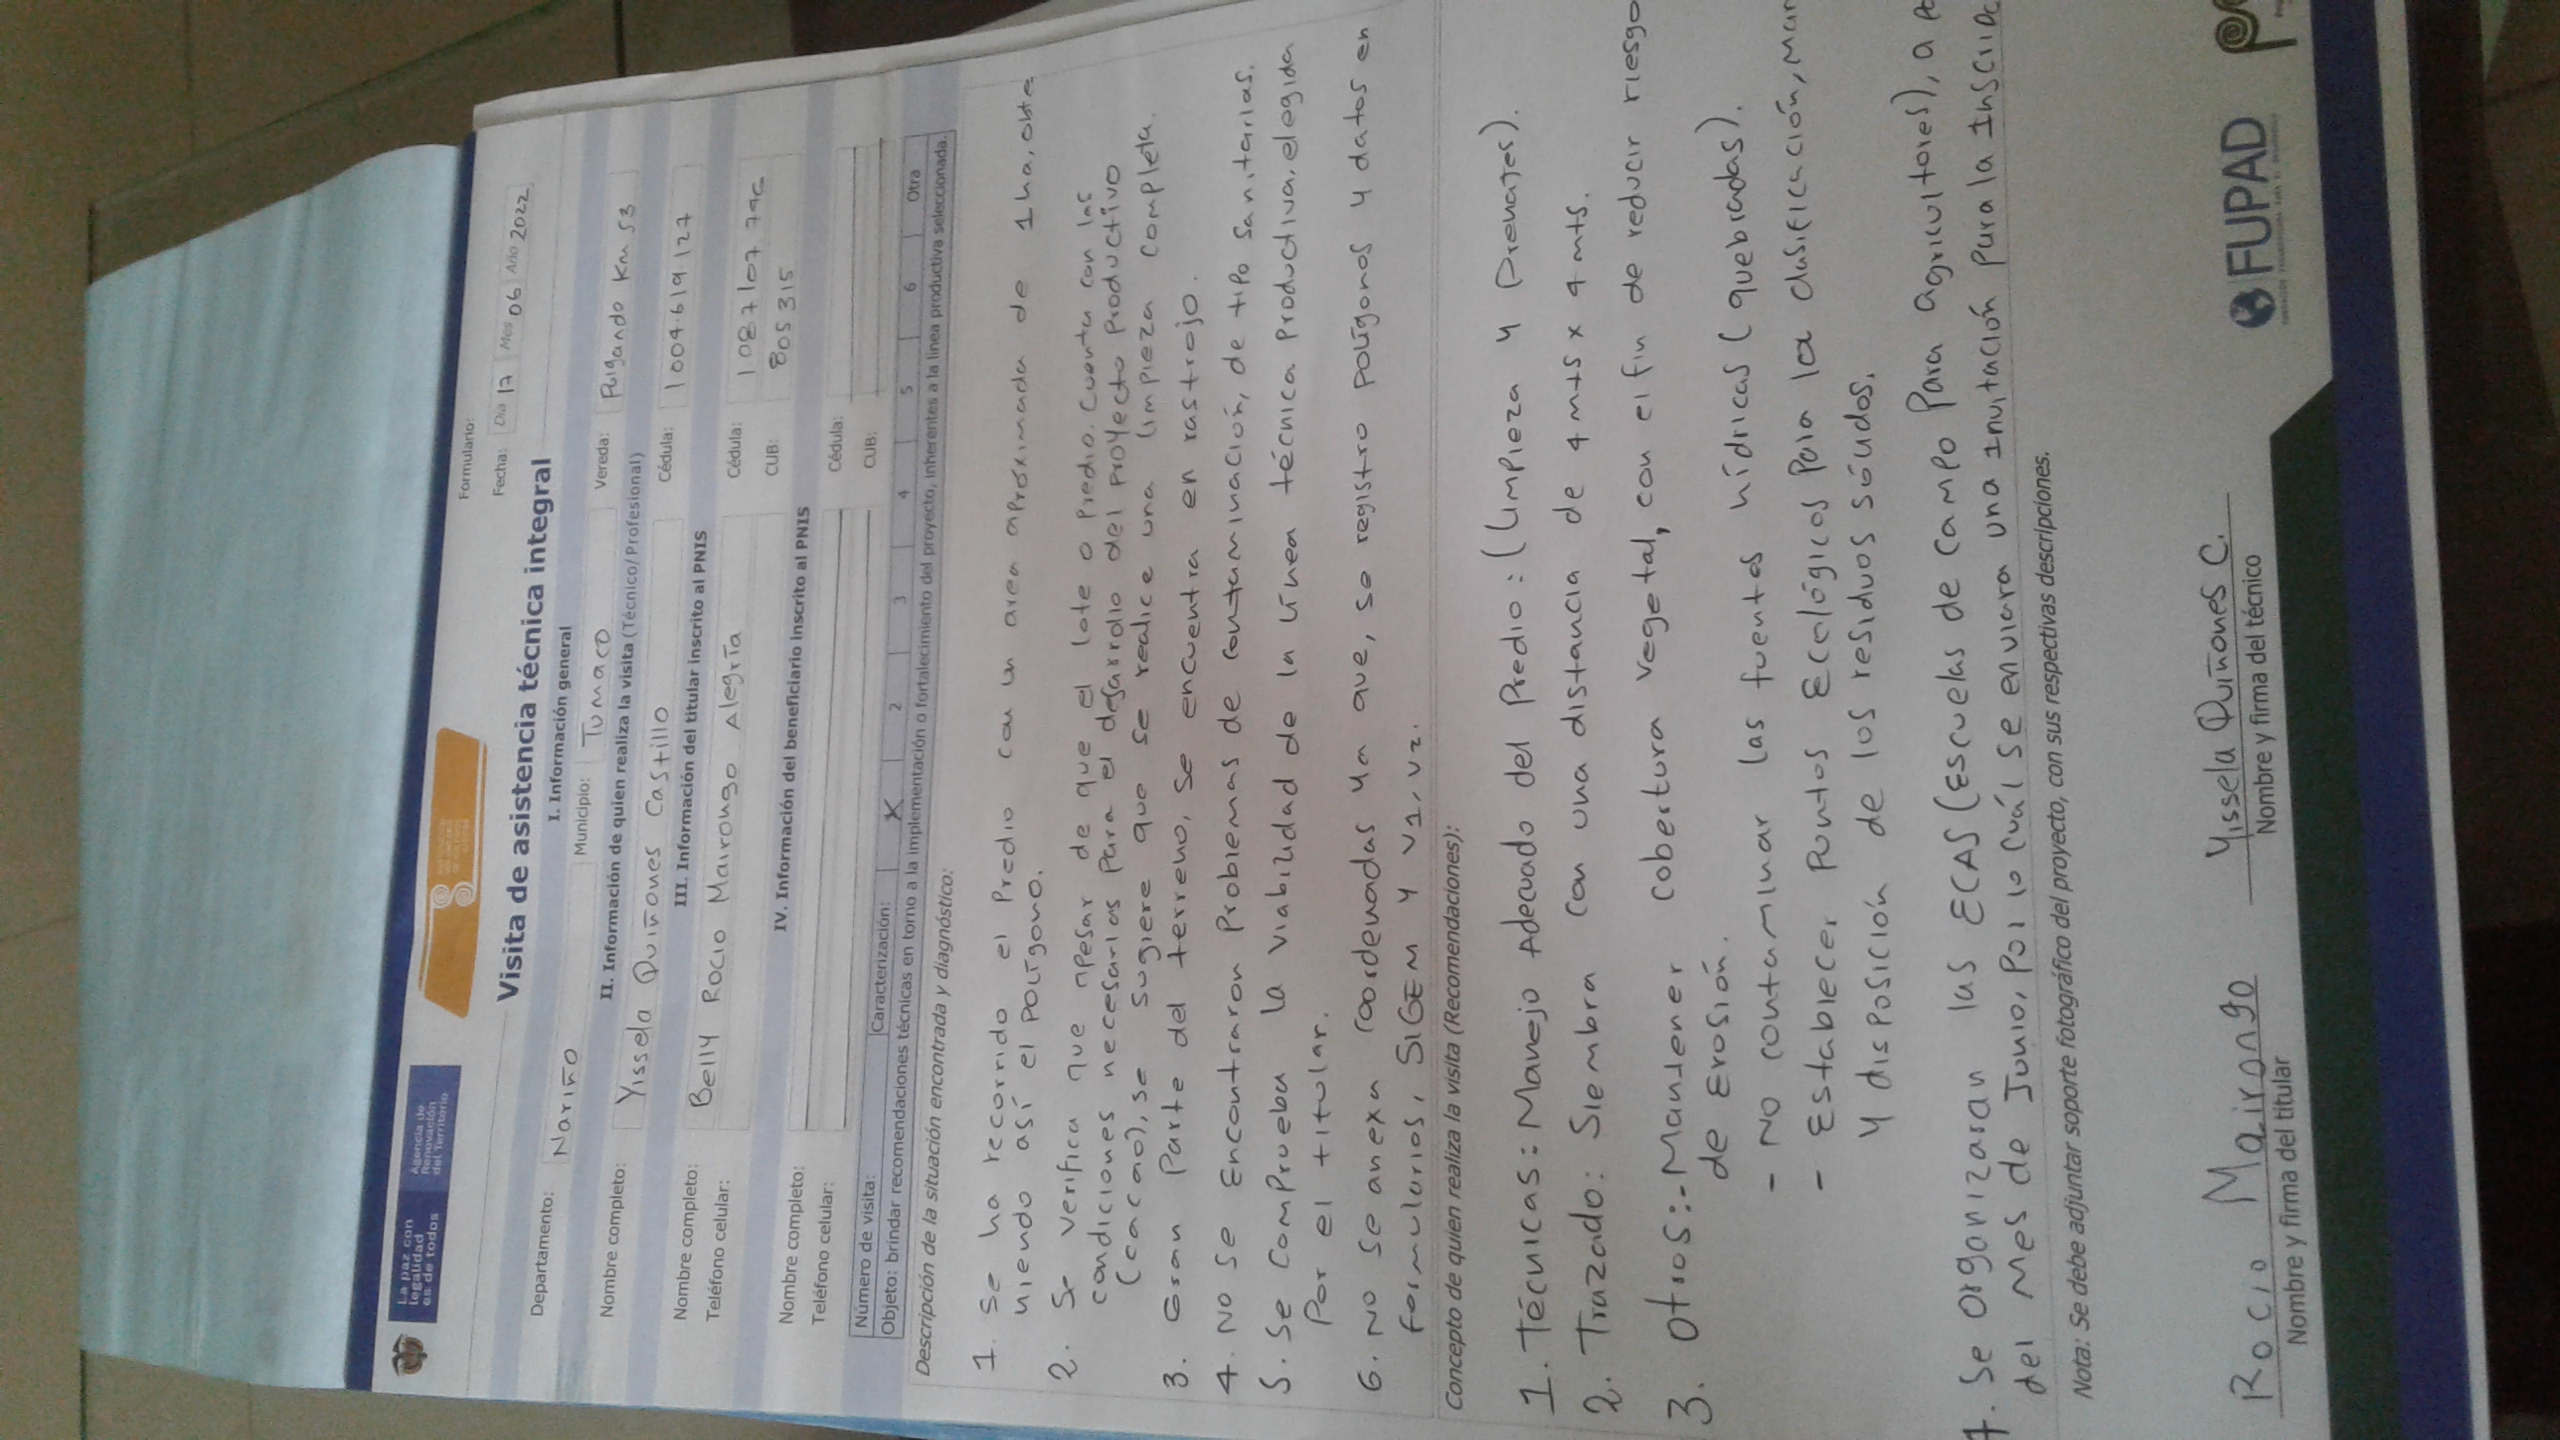 La paz con
legalidad
es de todos
Agencia de
Renovación
del Territorio
Formulario:
Visita de asistencia técnica integral
Fecha: Día 17 Mes 06 Año 2022
I. Información general
Departamento: Nariño Municipio: Tumaco Vereda: Pulgande Km 53
II. Información de quien realiza la visita (Técnico/Profesional)
Nombre completo: Yissela Quiñones Castillo Cédula: 1004619127
III. Información del titular inscrito al PNIS
Nombre completo: Belly Rocio Mairongo Alegría Cédula: 1087107
Teléfono celular: CUB: 805315
IV. Información del beneficiario inscrito al PNIS
Nombre completo: Cédula:
Teléfono celular: CUB:
Número de visita: Caracterización: X 2 3 4 5 6 Otra
Objeto: brindar recomendaciones técnicas en torno a la implementación o fortalecimiento del proyecto, inherentes a la línea productiva seleccionada.
Descripción de la situación encontrada y diagnóstico:
1. se ha recorrido el Predio con un area aproximada de 1 ha, obte
niendo así el Polígono.
2. Se verifica que apesar de que el lote o Predio. Cuenta con las
condiciones necesarias Para el desarrollo del proyecto productivo
(cacao), se sugiere que se realice una limpieza completa.
3. Gran Parte del terreno, se encuentra en rastrojo.
4. No se Encontraron Problemas de contaminación, de tipo sanitarias.
5. Se Comprueba la viabilidad de la línea técnica productiva, elegida
Por el titular.
6. No se anexa coordenadas ya que, se registro polígonos y datos en
formularios, SIGEM y V1, V2.
Concepto de quien realiza la visita (Recomendaciones):
1. Técnicas: Manejo Adecuado del Predio: (Limpieza y Drenajes).
2. Trazado: Siembra con una distancia de 4 mts x 4 mts.
3. Otros:- Mantener cobertura vegetal, con el fin de reducir riesgo
de Erosión.
- No contaminar las fuentes hídricas (quebradas).
- Establecer Puntos Ecológicos Para la clasificación, man
y disposición de los residuos sólidos.
4. Se Organizaran las ECAS (Escuelas de Campo Para agricultores), a
del Mes de Junio, Por lo cuál se enviara una Invitación Para la Inscrip
Nota: Se debe adjuntar soporte fotográfico del proyecto, con sus respectivas descripciones.
Rocio Mairongo Yissela Quiñones C.
Nombre y firma del titular Nombre y firma del técnico
FUPAD